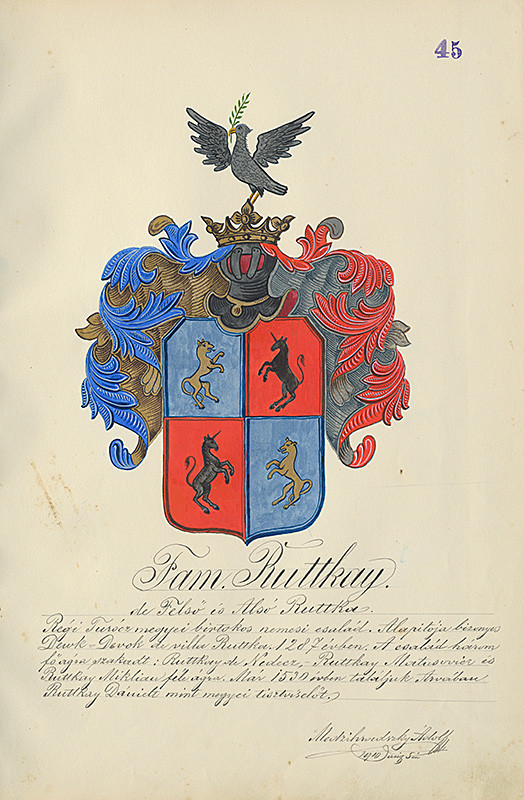 45
Fam. Ruttkay.
de Felső és Alsó Ruttka.
Régi Turócz megyei birtokos nemesi család. Alapítója bizonyos
Dewk-Davok de villa Ruttka 1287 évben. A család három
főágra szakadt: Ruttkay de Nedecz,- Ruttkay Matusovicz és
Ruttkay Miklian féle ágra. Már 1530 évben találjuk Árvában
Ruttkay Dánielt mint megyei tisztviselőt.
Medzihradszky Adolf
1910